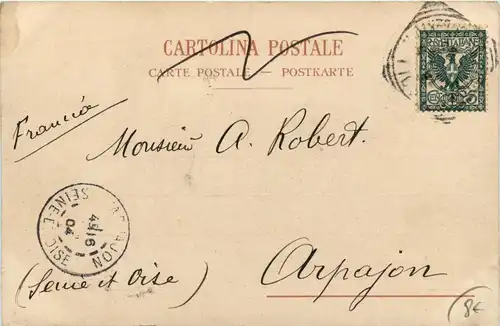 CARTOLINA POSTALE
CARTE POSTALE — POSTKARTE
POSTE ITALIANE
Francia
Monsieur A. Robert.
ARPAJON
4 16
04
SEINE-ET-OISE
(Seine et Oise)
Arpajon
8€